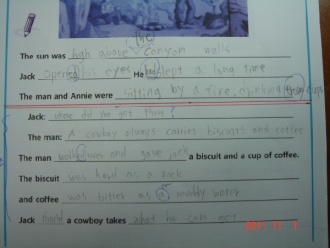 the
The sun was high above canyon walls
Jack opened his eyes. He had slept a long time
The man and Annie were sitting by a fire, drinking
Jack: How did we get there?
The man: A cowboy always carries biscuits and coffee
The man wolves and gave jack a biscuit and a cup of coffee.
The biscuit was hard as a rock
and coffee was bitter as a muddy water
Jack a cowboy takes what he can get